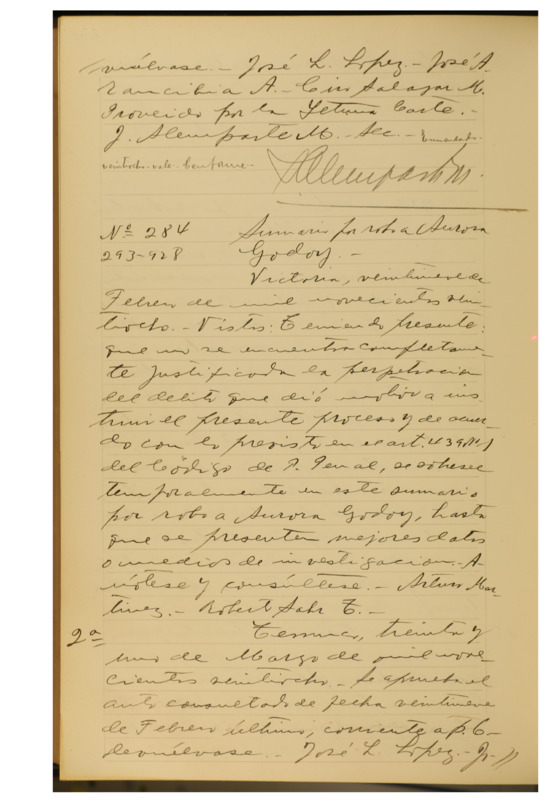 vuélvase. – José L. Lopez. – José A.
Zancibia A. – Ciro Salazar M.
Proveido por la Iltma Corte. –
J. Alemparte M. – Sec. – Enmendado
veintiocho – vale. Conforme. –
JAlemparte M.
Nº 284 Sumario por robo a Aurora
293-928 Godoy. –
Victoria, veintinueve de
Febrero de mil novecientos vein-
tiocho. – Vistos: Teniendo presente:
que no se encuentra completamen-
te justificada la perpetracion
del delito que dió motivo a ins-
truir el presente proceso y de acuer-
do con lo previsto en el art. 439 Nº 1
del Código de P. Penal, se sobresee
temporalmente en este sumario
por robo a Aurora Godoy, hasta
que se presenten mejores datos
o medios de investigacion. – A-
nótese y consúltese. – Arturo Mar-
tinez. – Robert Sahr T. –
2ª Temuco, treinta y
uno de Marzo de mil nove-
cientos veintiocho. – Se aprueba el
auto consultado de fecha veintinueve
de Febrero último, corriente a f. 6 –
devuélvase. – José L. Lopez. –